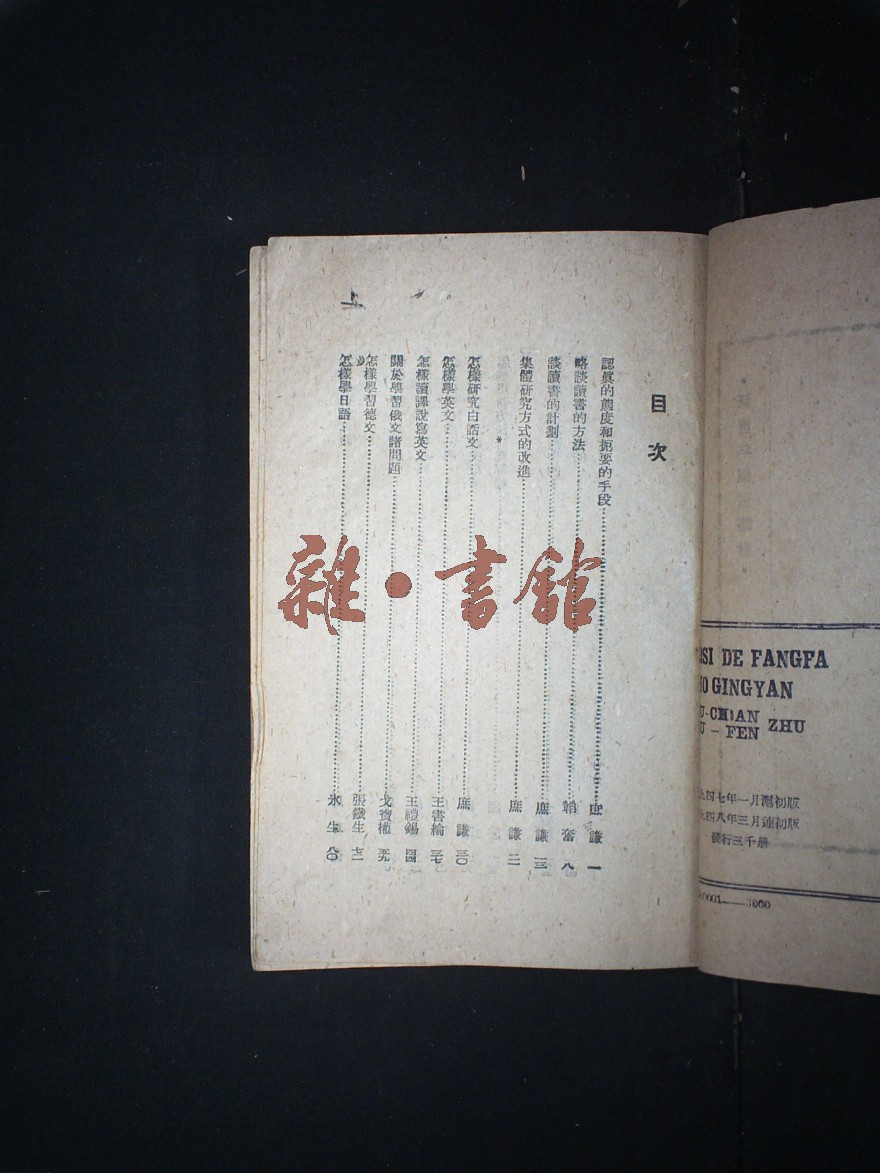 SI DE FANGFA
O GINGYAN
U-CHIAN
U-FEN ZHU
九四七年一月滬初版
九四八年三月連初版
發行三千册
0001——3000
目次
認眞的態度和扼要的手段……庶謙 一
略談讀書的方法……韜奮 八
談讀書的計劃……庶謙 一三
集體研究方式的改進……庶謙 二
怎樣研究白話文……庶謙 三〇
怎樣學英文……王書綸 三七
怎樣讀譯說寫英文……王禮錫 四
關於學習俄文諸問題……戈寶權 五九
怎樣學習德文……張鐵生
怎樣學日語……氷生 八〇
雜·書館